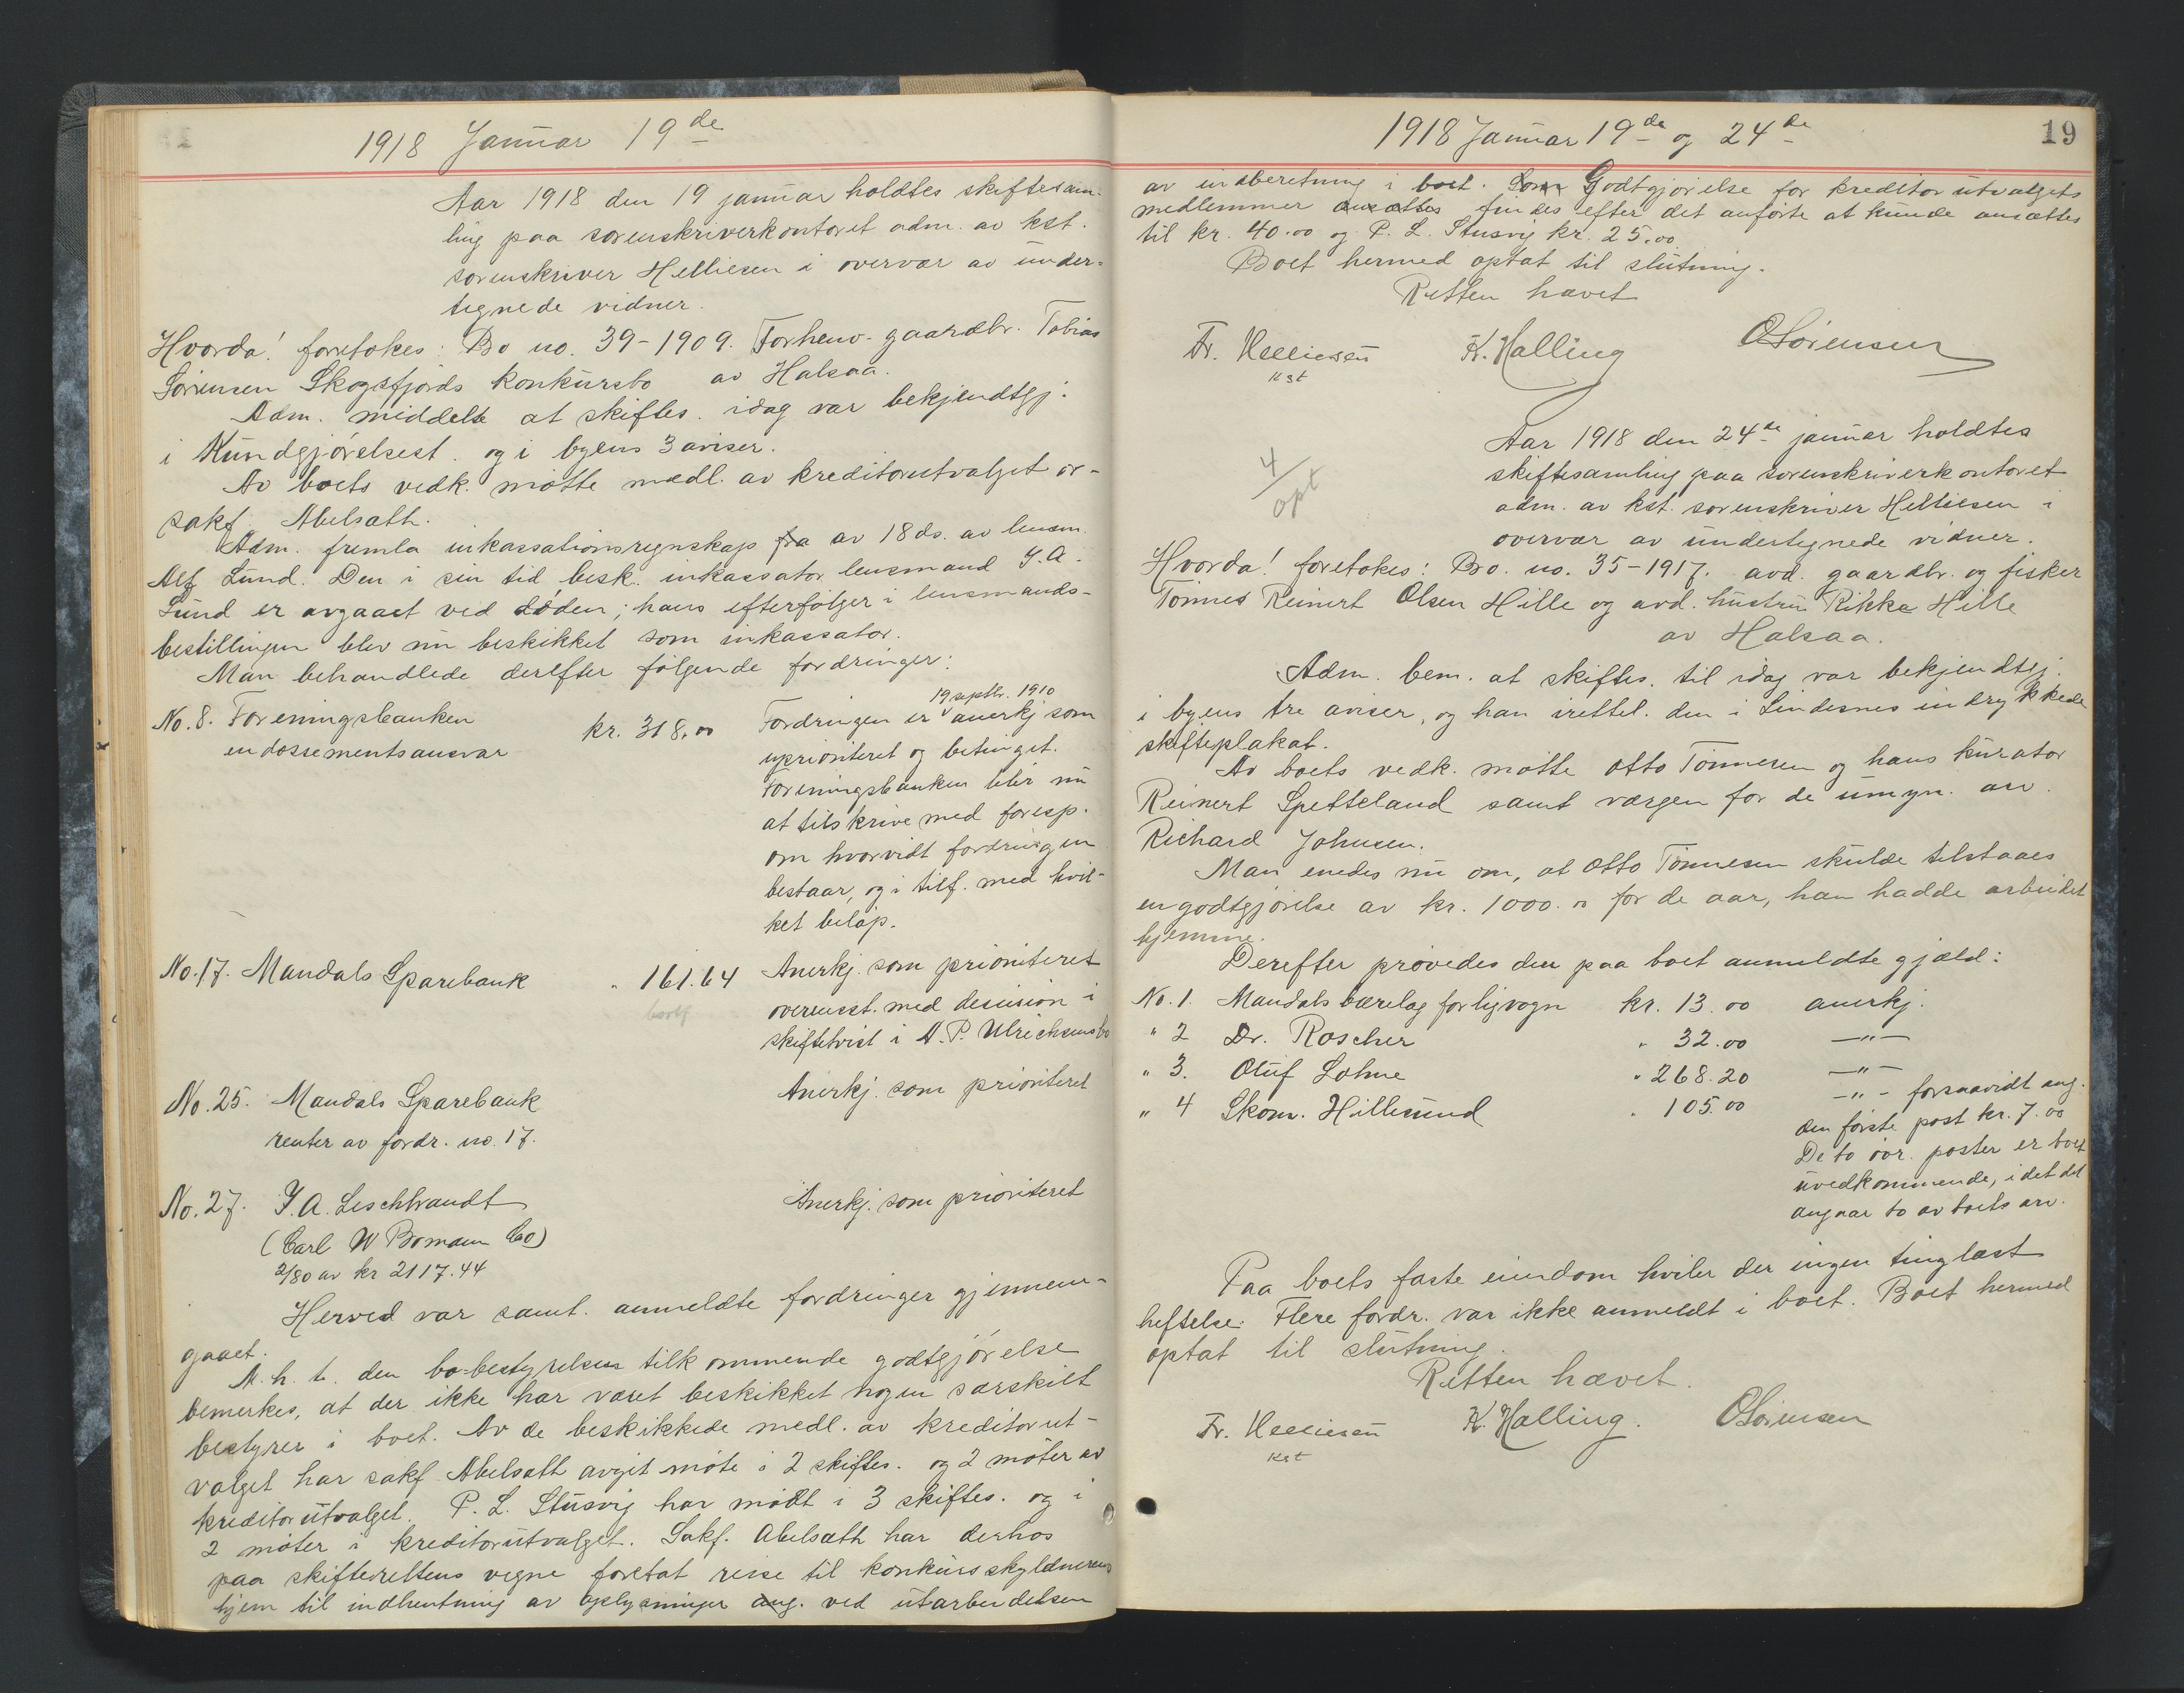 1918 Januar 19de
Aar 1918 den 19 januar holdtes skiftesam-
ling paa sorenskriverkontoret adm. av kst.
sorenskriver Helliesen i overvær av under-
tegnede vidner.
Hvorda! foretokes: Bo no. 39-1909. Forhenv. gaardbr. Tobias
Sørensen Skogsfjords konkursbo av Halsaa.
Adm. middelte at skiftes. idag var bekjendtgj.
i Kundgjørelsest. og i byens 3 aviser.
Av boets vedk. møtte medl. av kreditorutvalget or-
sakf. Abelsæth.
Adm. fremla inkassationsregnskap fra av 18 ds. av lensm.
Alf Lund. Den i sin tid besk. inkassator lensmand J. A.
Lund er avgaaet ved døden; hans efterfølger i lensmands-
bestillingen blev nu beskikket som inkassator.
Man behandlede derefter følgende fordringer:
No. 8. Foreningsbanken kr. 318,00 Fordringen er 19 septbr. 1910 anerkj som
endossementsansvar
uprioriteret og betinget.
Foreningsbanken blir nu
at tilskrive med foresp.
om hvorvidt fordringen
bestaar, og i tilf. med hvil-
ket beløp.
No. 17. Mandals Sparebank " 161.64 Anerkj. som prioriteret
overensst. med decision i
skiftetvist i A. P. Ulrichsens bo
No. 25. Mandals Sparebank Anerkj. som prioriteret
renter av fordr. no. 17.
No. 27. J. A. Leschbrandt Anerkj. som prioriteret
(Carl W Bomann Co)
2/80 av kr 2117.44
Herved var samt. anmeldte fordringer gjennem-
gaaet.
M. h. t. den bo-bestyrelsen tilkommende godtgjørelse
bemerkes, at der ikke har været beskikket nogen særskilt
bestyrer i boet. Av de beskikkede medl. av kreditorut-
valget har sakf Abelsæth avgit møte i 2 skiftes. og 2 møter av
kreditorutvalget. P. L. Stusvig har mødt i 3 skiftes. og i
2 møter i kreditorutvalget. Sakf. Abelsæth har derhos
paa skifterettens vegne foretat reise til konkursskyldnerens
hjem til indhentning av oplysninger ang. ved utarbeidelsen
1918 Januar 19de og 24de
19
av indberetning i boet. Som Godtgjørelse for kreditorutvalgets
medlemmer ansættes findes efter det anførte at kunde ansættes
til kr. 40.00 og P. L. Stusvig kr. 25.00
Boet hermed optat til slutning.
Retten hævet
Fr. Helliesen K. Halling O Sørensen
kst
4/opt
Aar 1918 den 24de januar holdtes
skiftesamling paa sorenskriverkontoret
adm. av kst. sorenskriver Helliesen i
overvær av undertegnede vidner.
Hvorda! foretokes: Bo. no. 35-1917. avd. gaardbr. og fisker
Tønnes Reinert Olsen Hille og avd. hustru Rikke Hille
av Halsaa.
Adm. bem. at skiftes. til idag var bekjendtgj.
i byens tre aviser, og han irettel. den i Lindesnes indrykkede
skifteplakat.
Av boets vedk. møtte Otto Tønnesen og hans kurator
Reinert Spetteland samt værgen for de umyn. arv.
Richard Johnsen.
Man enedes nu om, at Otto Tønnesen skulde tilstaaes
en godtgjørelse av kr. 1000.00 for de aar, han hadde arbeidet
hjemme.
Derefter prøvedes den paa boet anmeldte gjæld:
No. 1. Mandals bærelag for ligvogn kr. 13.00 anerkj.
" 2 Dr. Roscher " 32.00 —"—
" 3. Oluf Lohne " 268.20 —"—
" 4 Skom. Hillesund " 105.00 —"— forsaavidt ang.
den første post kr. 7.00
De to øvr. poster er boet
uvedkommende, idet det
angaar to av boets arv.
Paa boets faste eiendom hviler der ingen tinglæst
heftelse. Flere fordr. var ikke anmeldt i boet. Boet hermed
optat til slutning.
Retten hævet.
Fr. Helliesen K. Halling. O Sørensen
kst